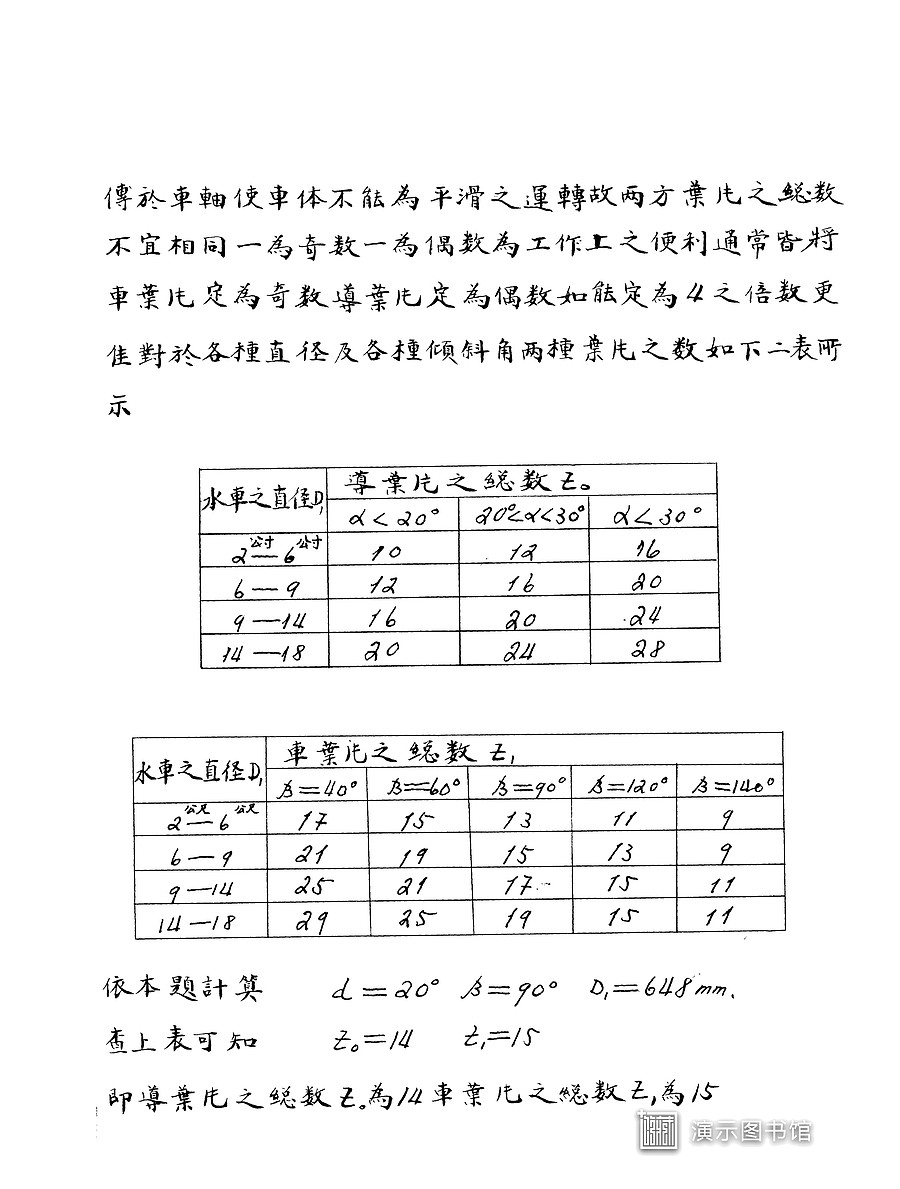 傳於車軸使車体不能為平滑之運轉故两方葉片之総数
不宜相同一為奇数一為偶数為工作上之便利通常皆将
車葉片定為奇数導葉片定為偶数如能定為4之倍数更
佳對於各種直径及各種傾斜角两種葉片之数如下二表所
示
水車之直径D₁ 導葉片之総数Z₀
α<20° 20°<α<30° α<30°
2公寸—6公寸 10 12 16
6—9 12 16 20
9—14 16 20 24
14—18 20 24 28
水車之直径D₁ 車葉片之総数Z₁
β=40° β=60° β=90° β=120° β=140°
2公尺—6公尺 17 15 13 11 9
6—9 21 19 15 13 9
9—14 25 21 17 15 11
14—18 29 25 19 15 11
依本題計算 α=20° β=90° D₁=648mm.
查上表可知 Z₀=14 Z₁=15
即導葉片之総数Z₀為14車葉片之総数Z₁為15
演示图书馆